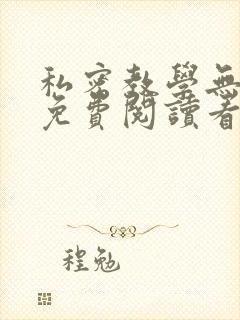 私密教學無
免費閱讀看
程勉